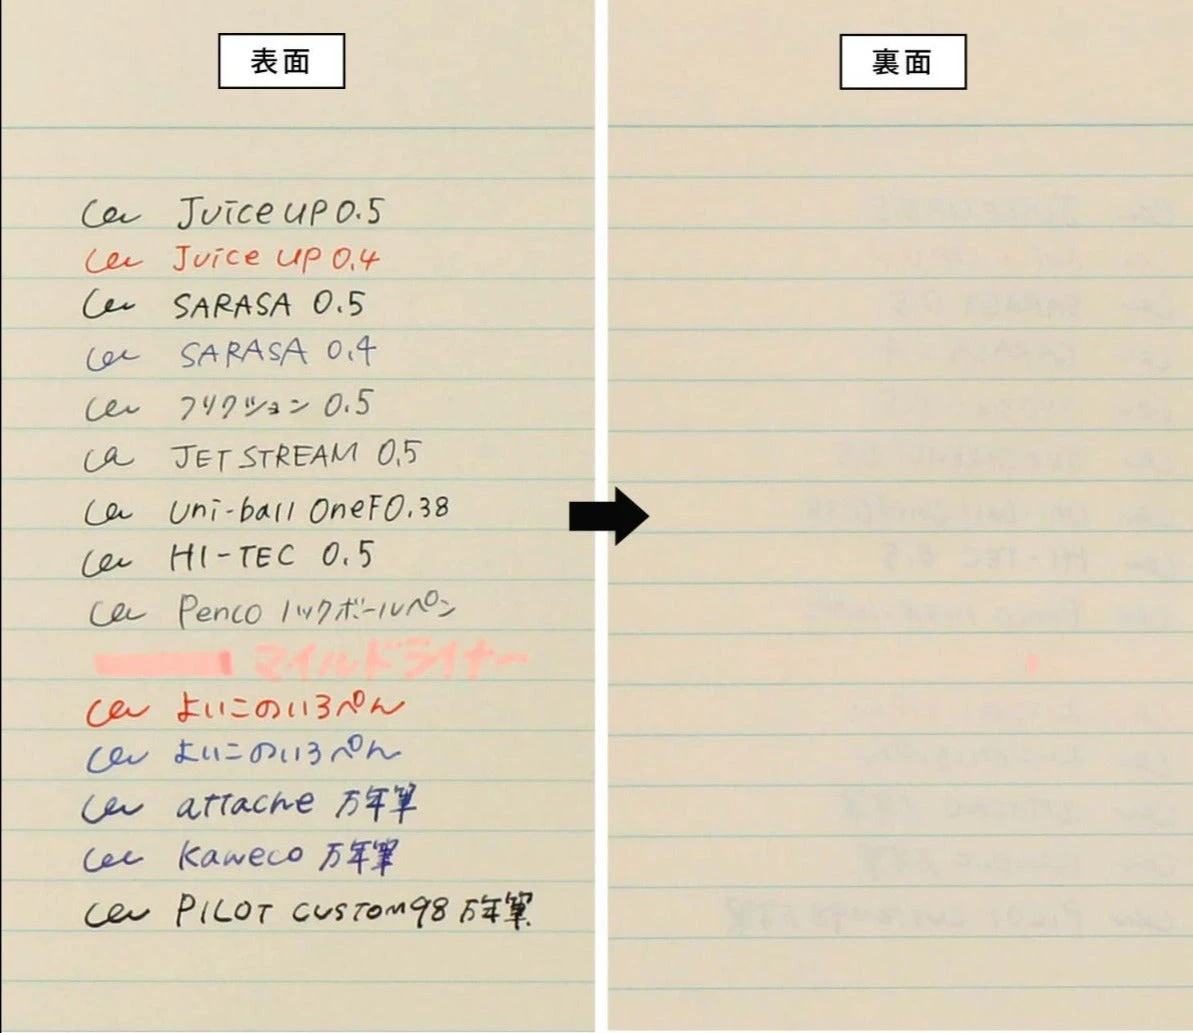 表面
Juice UP 0.5
Juice UP 0.4
SARASA 0.5
SARASA 0.4
フリクション 0.5
JET STREAM 0.5
uni-ball OneF0.38
HI-TEC 0.5
Penco ノックボールペン
マイルドライナー
よいこのいろぺん
よいこのいろぺん
attache 万年筆
Kaweco 万年筆
PILOT CUSTOM98 万年筆
裏面